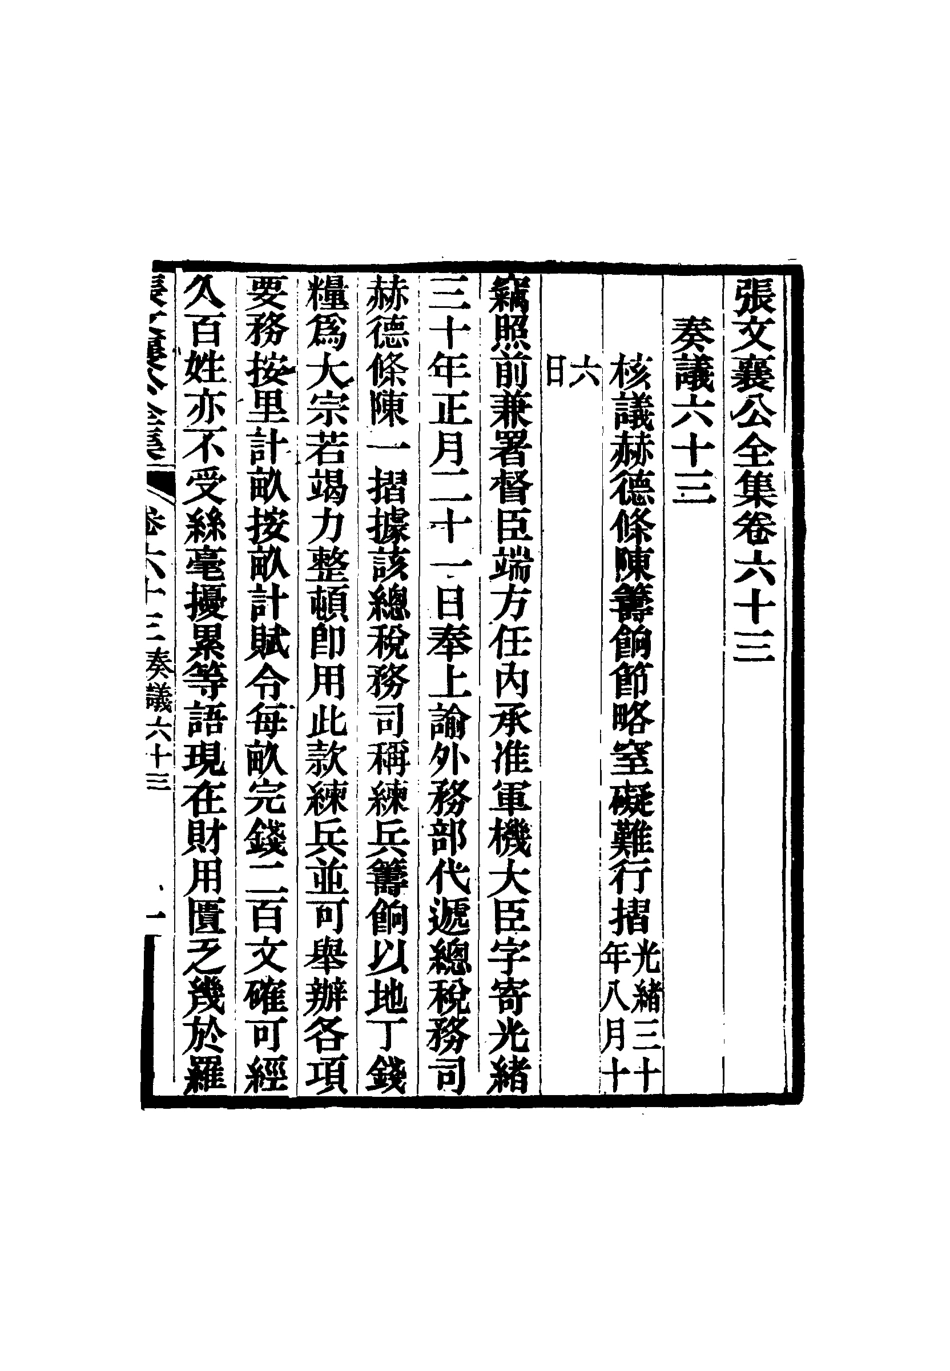 張文襄公全集卷六十三
奏議六十三
核議赫德條陳籌餉節略窒礙難行摺光緒三十年八月十
六日
竊照前兼署督臣端方任內承准軍機大臣字寄光緒
三十年正月二十一日奉上諭外務部代遞總稅務司
赫德條陳一摺據該總稅務司稱練兵籌餉以地丁錢
糧爲大宗若竭力整頓卽用此款練兵並可舉辦各項
要務按里計畝按畝計賦令每畝完錢二百文確可經
久百姓亦不受絲毫擾累等語現在財用匱乏幾於羅
張文襄公全集 卷六十三 奏議六十三 一